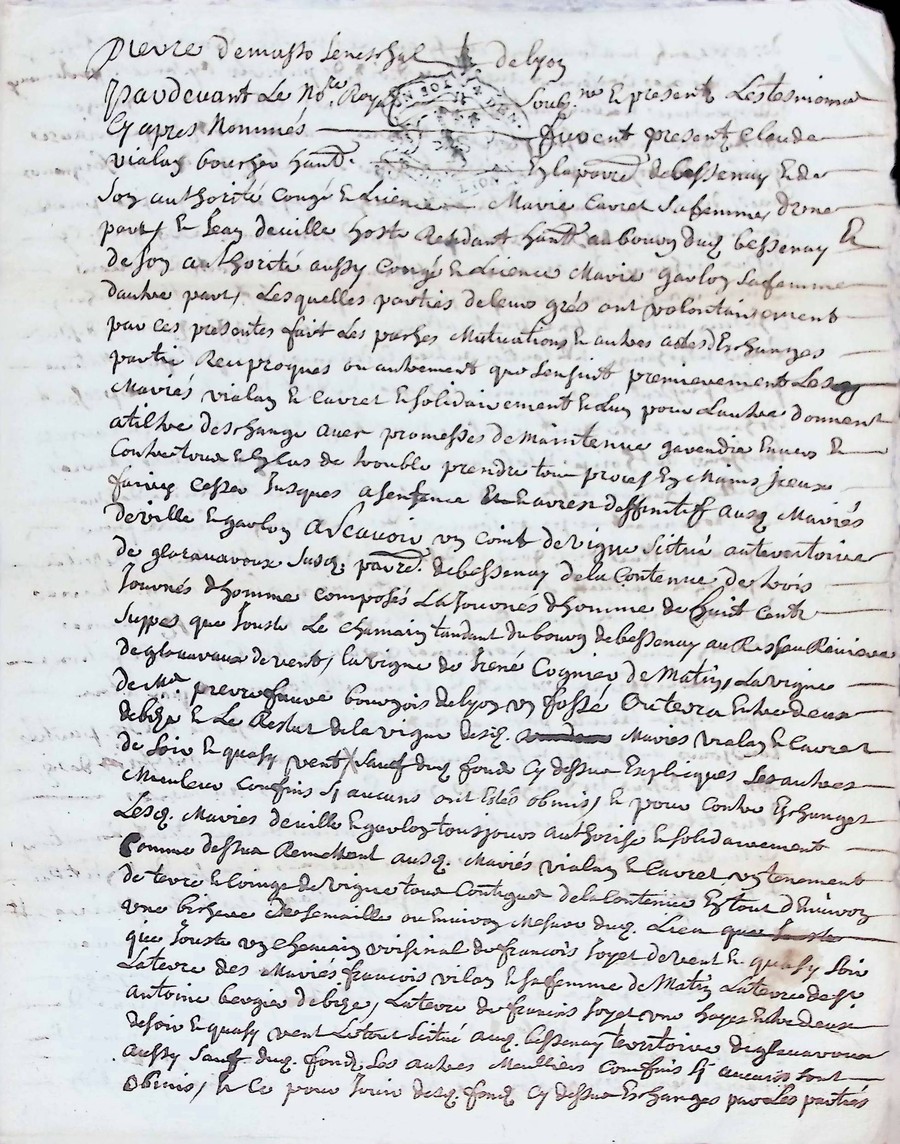 Pierre Demasso Seneschal de Lyon
Pardevant Le Nore. Royal soubz.né & present Les tesmoins
Cy apres Nommés furent presentz Claude
vialan boucher hantt. En la parre. de bessenay & de
Son authorité Congé & Licence Marie Carret Sa femme, d'une
part, & Jean deville hoste Residant hantt. au bourg dud. bessenay &
de Son authorité aussy Congé & Licence Marie gavlon Sa femme
d'autre part, Lesquelles parties de leurs grés ont volontairement
par ces presentes fait Les paches Mutuations & autres actes D'Eschanges
partie Reciproques ou autrement que sensuit premierement Lesq.
Mariés vialan & Carret & solidairement & L'un pour L'autre donnent
a tiltre deschange avec promesses de Maintenue garendie Envers &
Contre tous & En Cas de trouble prendre tous proces En Mains Iceux
faire Cesser Jusques a sentence & arrest deffinitif ausq. Mariés
Deville & gavlon ascavoir un Coint de vigne Situé au territoire
de glavavaux Susd. parre. de bessenay de la Contenue de trois
Journés d'homme Composés La Journes d'homme de huit Cent
Suppes que Jouste Le Chamain tandant du bourg de bessenay au Russeau Riviere
de glavavaux de vent, la vigne de Irené Cognier de Matin, La vigne
de Mre. pierre faure bourgois de Lyon un fossé Entre deux
de bize & Le Restat de la vigne desq. Mariés vialan & Carret
de Soir & quasy vent, Sauf dud. fond Cy dessus Expliqués Les autres
Meilleurs Confins Sy aucuns ont Estés obmis, & pour Contre Eschanges
Lesq. Mariés deville & gavlon tousjours authorisé & solidairement
Comme dessus Remettent ausq. Mariés vialan & Carret un tenement
de terre & Coing de vigne tous Contigus de la Contenue En tout d'Environ
une bicheree de semaille ou Environ Mesure dud. Lieu que Jouste
que Jouste un Chemain voisinal de francois soyet de vent & quasy Soir
La terre des Mariés francois vilan & sa femme de Matin La terre de Sr.
Antoine bergier de bize, La terre de francois soyet une haye Entre deux
de soir & quasy vent Le tout Situé aud. bessenay territoire de glavavaux
aussy Sauf dud. fond. Les autres Meilliers Confins Sy aucuns sont
obmis, & Ce pour Jouir desq. fond. Cy dessus Eschangés par Les parties